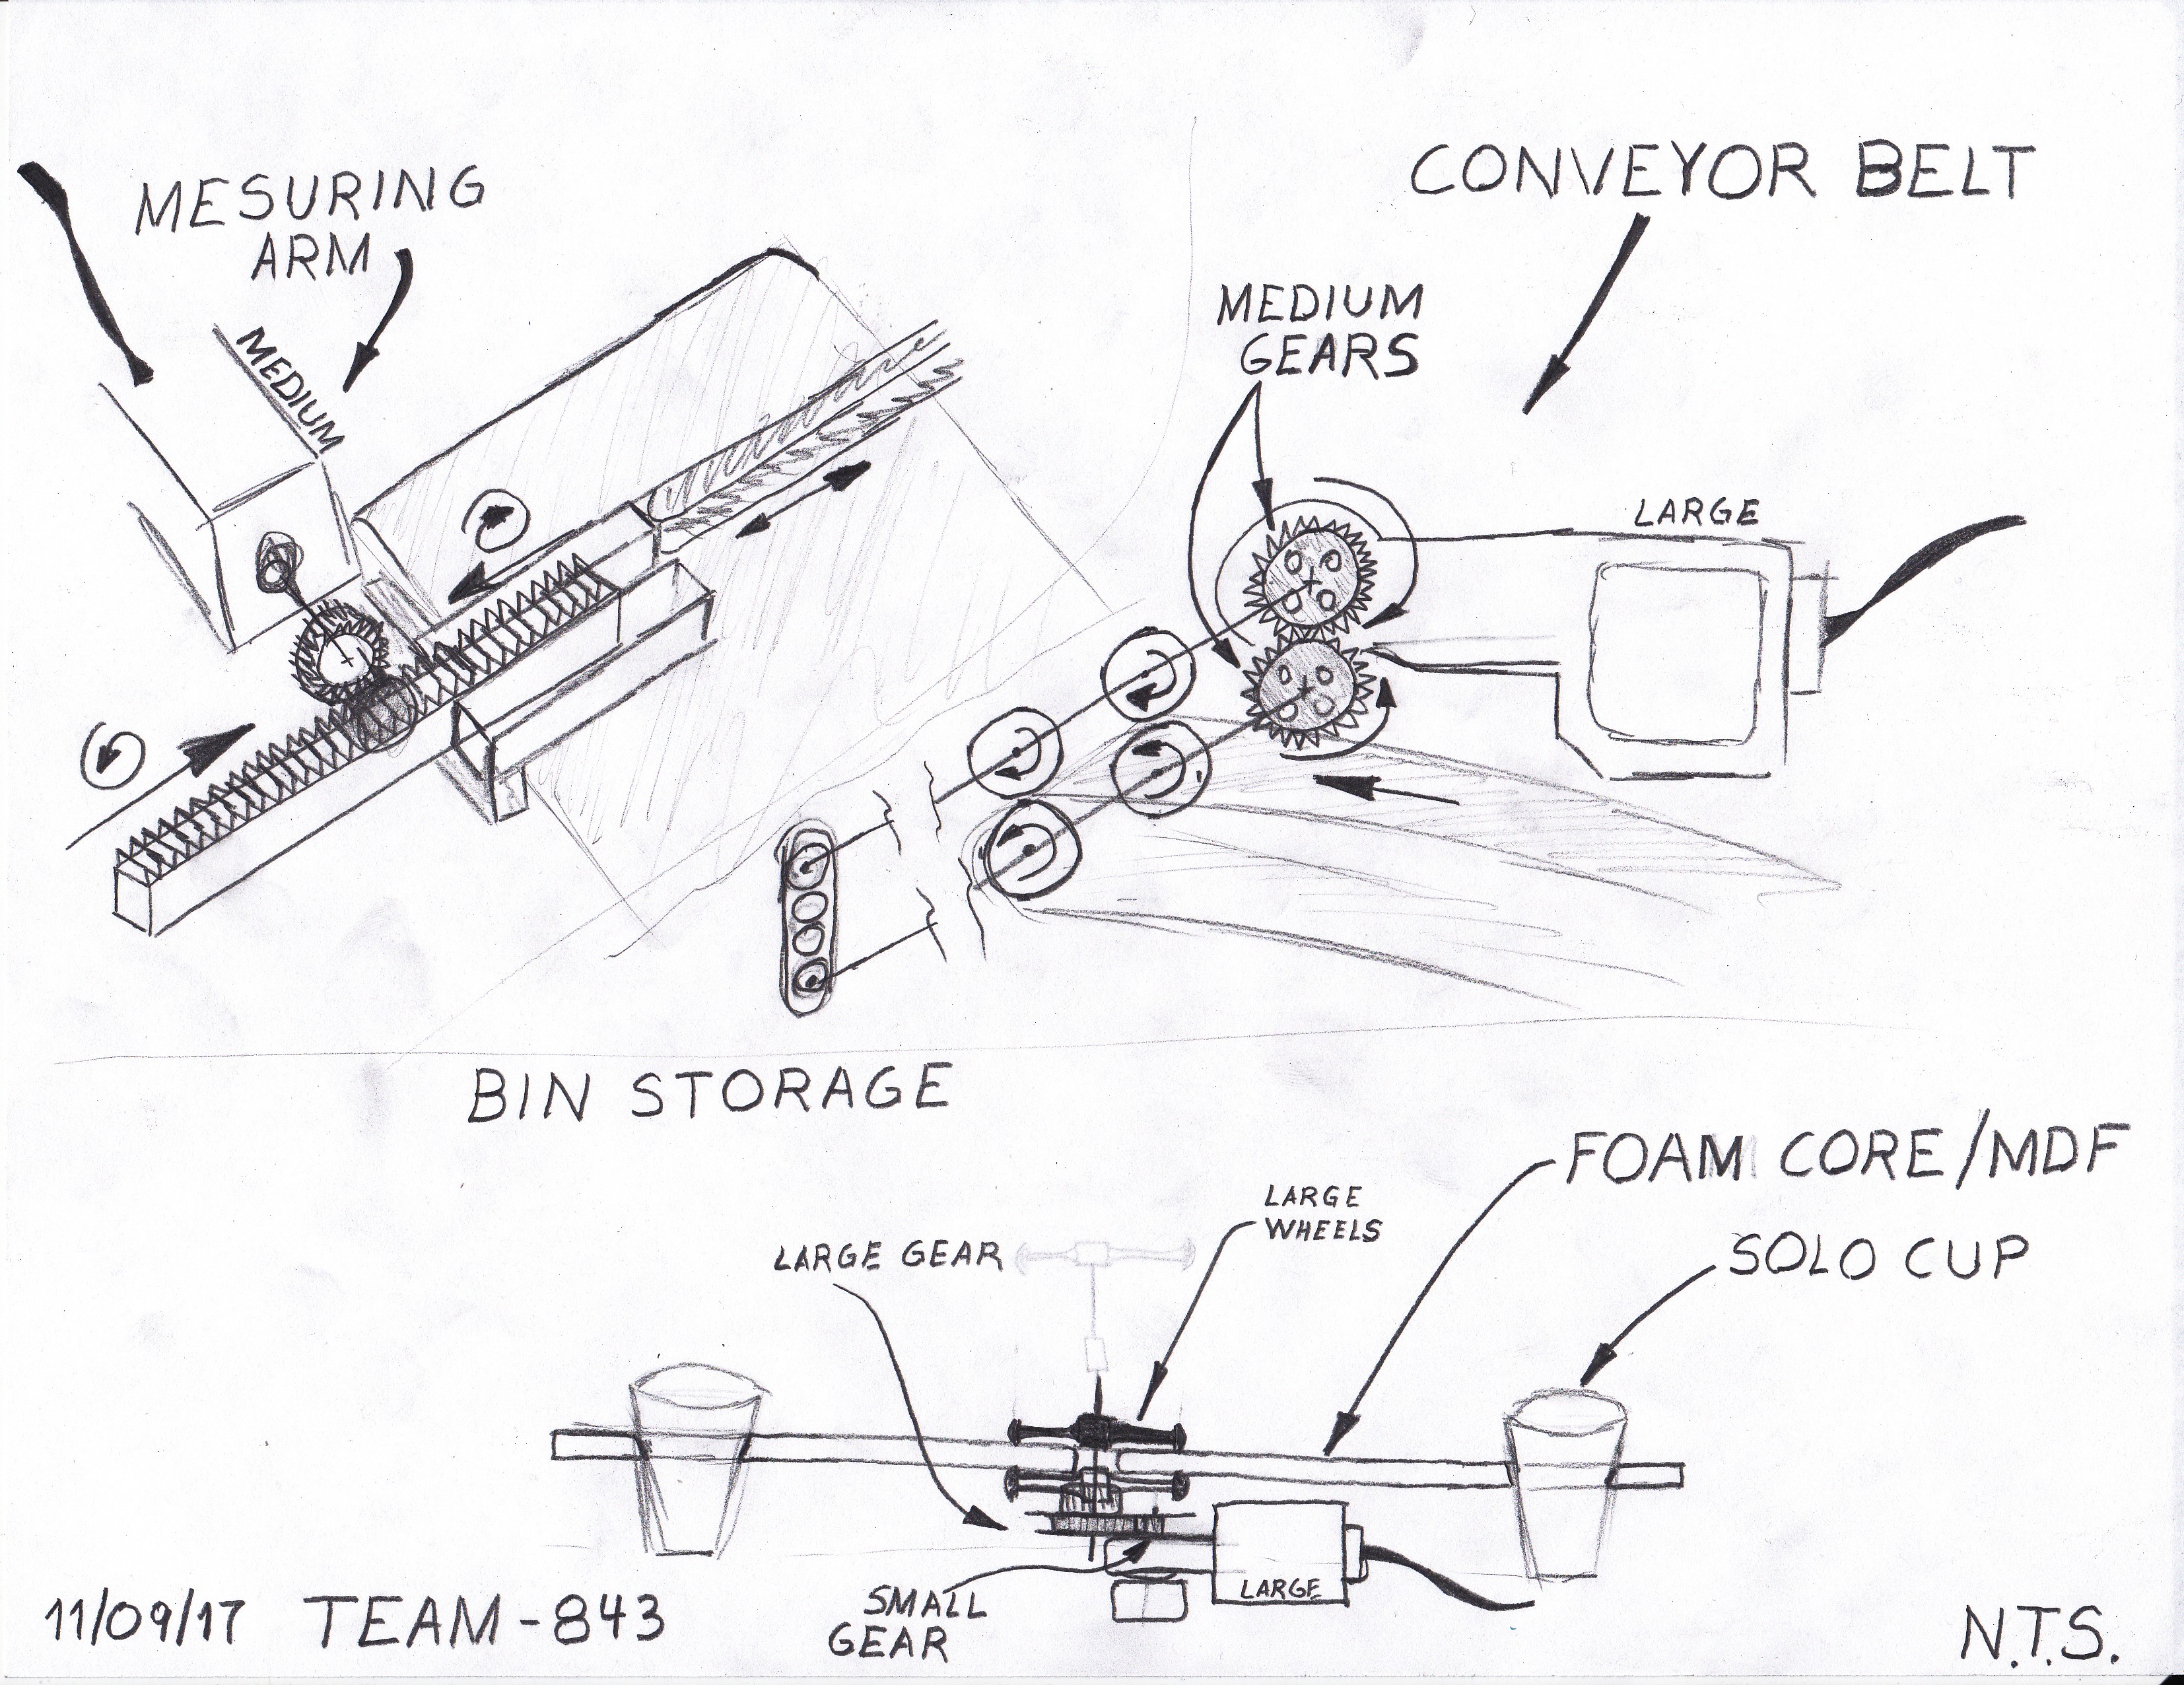 MESURING
ARM
MEDIUM
CONVEYOR BELT
MEDIUM
GEARS
LARGE
BIN STORAGE
FOAM CORE/MDF
LARGE
WHEELS
SOLO CUP
LARGE GEAR
SMALL
GEAR
LARGE
11/09/17 TEAM-843
N.T.S.